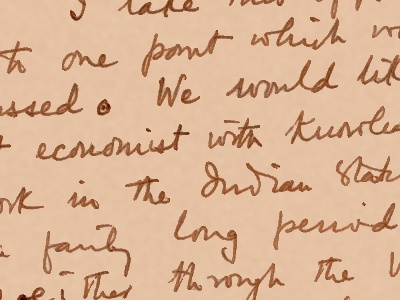 I take this
to one point which
ssed. We would
economist with knowle
ork in the Indian Stat
fairly long period
either through the